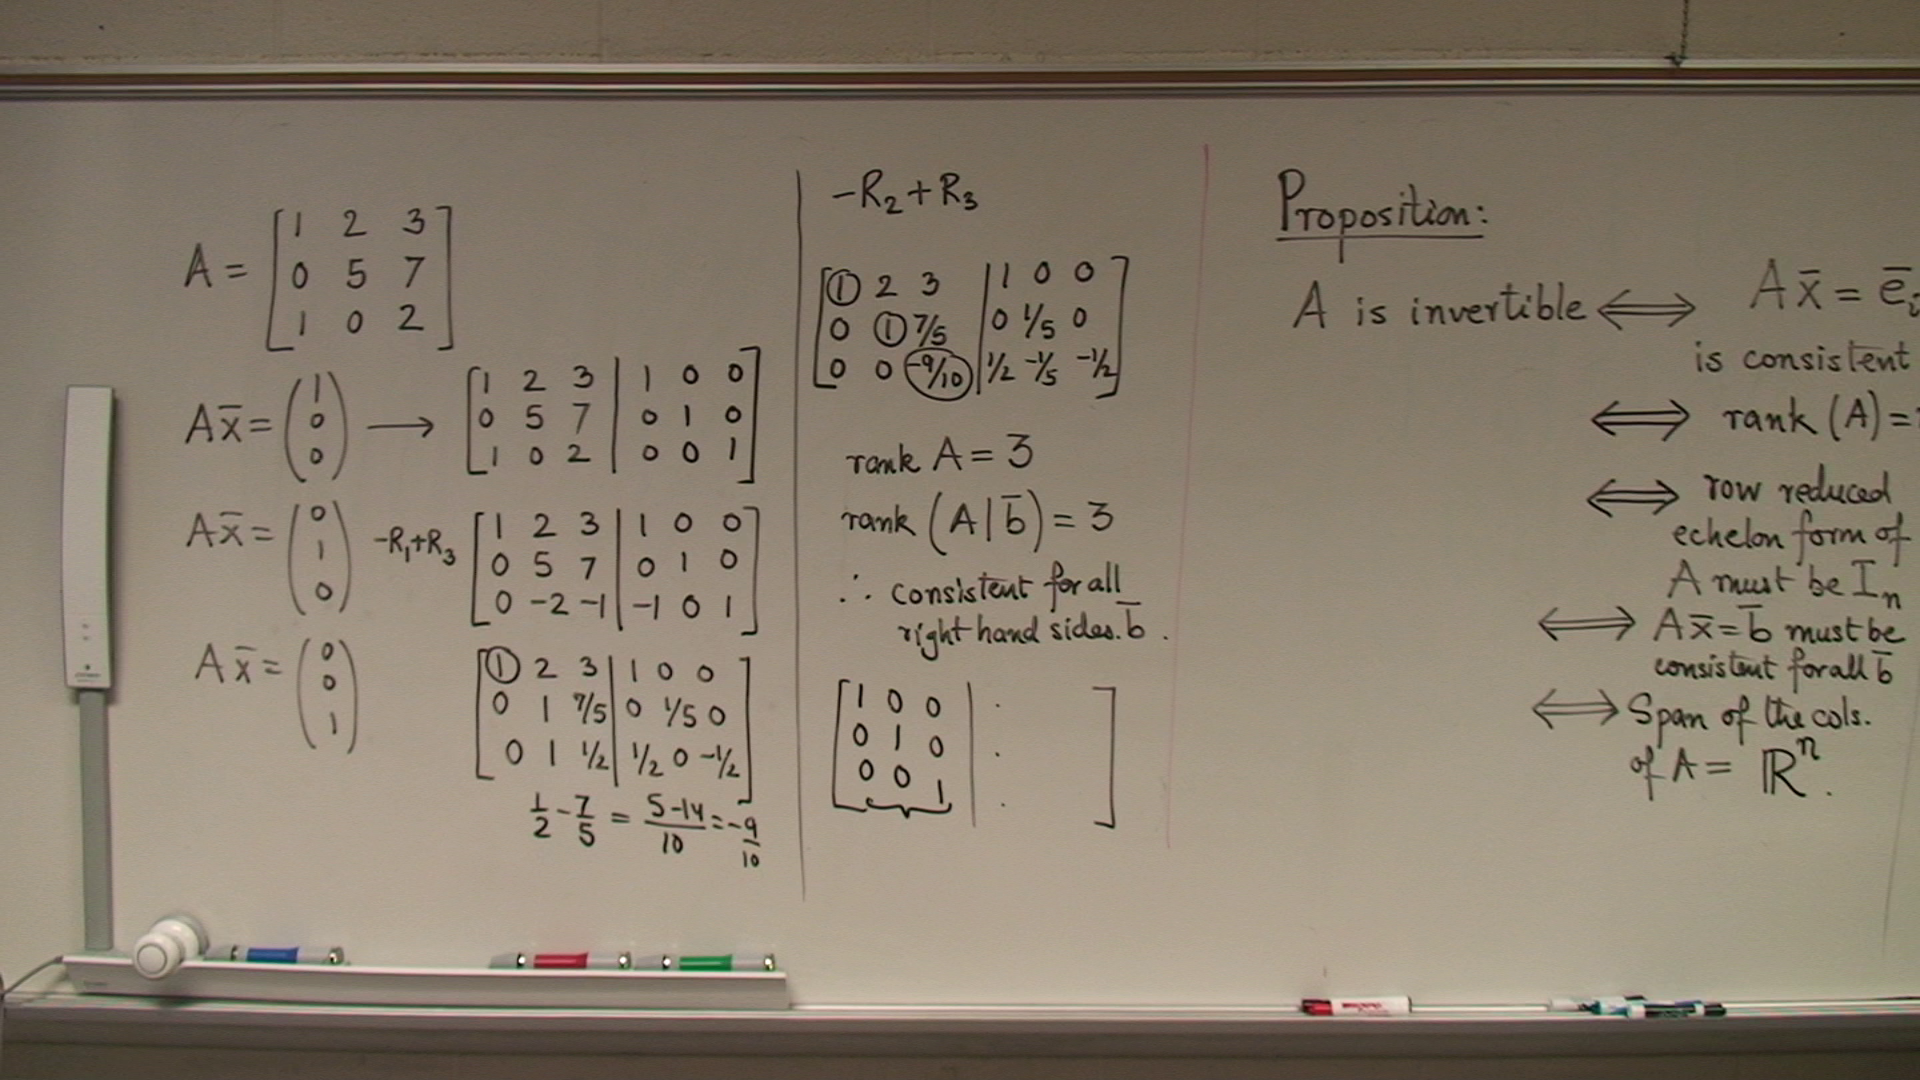 A = [1 2 3
0 5 7
1 0 2]
Ax̄ = (1
0
0) ⟶ [1 2 3 | 1 0 0
0 5 7 | 0 1 0
1 0 2 | 0 0 1]
Ax̄ = (0
1
0) -R₁+R₃ [1 2 3 | 1 0 0
0 5 7 | 0 1 0
0 -2 -1 | -1 0 1]
Ax̄ = (0
0
1) [① 2 3 | 1 0 0
0 1 7/5 | 0 1/5 0
0 1 1/2 | 1/2 0 -1/2]
1/2 - 7/5 = (5-14)/10 = -9/10
-R₂+R₃
[① 2 3 | 1 0 0
0 ① 7/5 | 0 1/5 0
0 0 -9/10 | 1/2 -1/5 -1/2]
rank A = 3
rank (A | b̄) = 3
∴ consistent for all
right hand sides. b̄.
[1 0 0 | .
0 1 0 | .
0 0 1 | . ]
Proposition:
A is invertible ⟺ Ax̄ = ēᵢ
is consistent
⟺ rank (A) =
⟺ row reduced
echelon form of
A must be Iₙ
⟺ Ax̄ = b̄ must be
consistent for all b̄
⟺ Span of the cols.
of A = ℝⁿ.